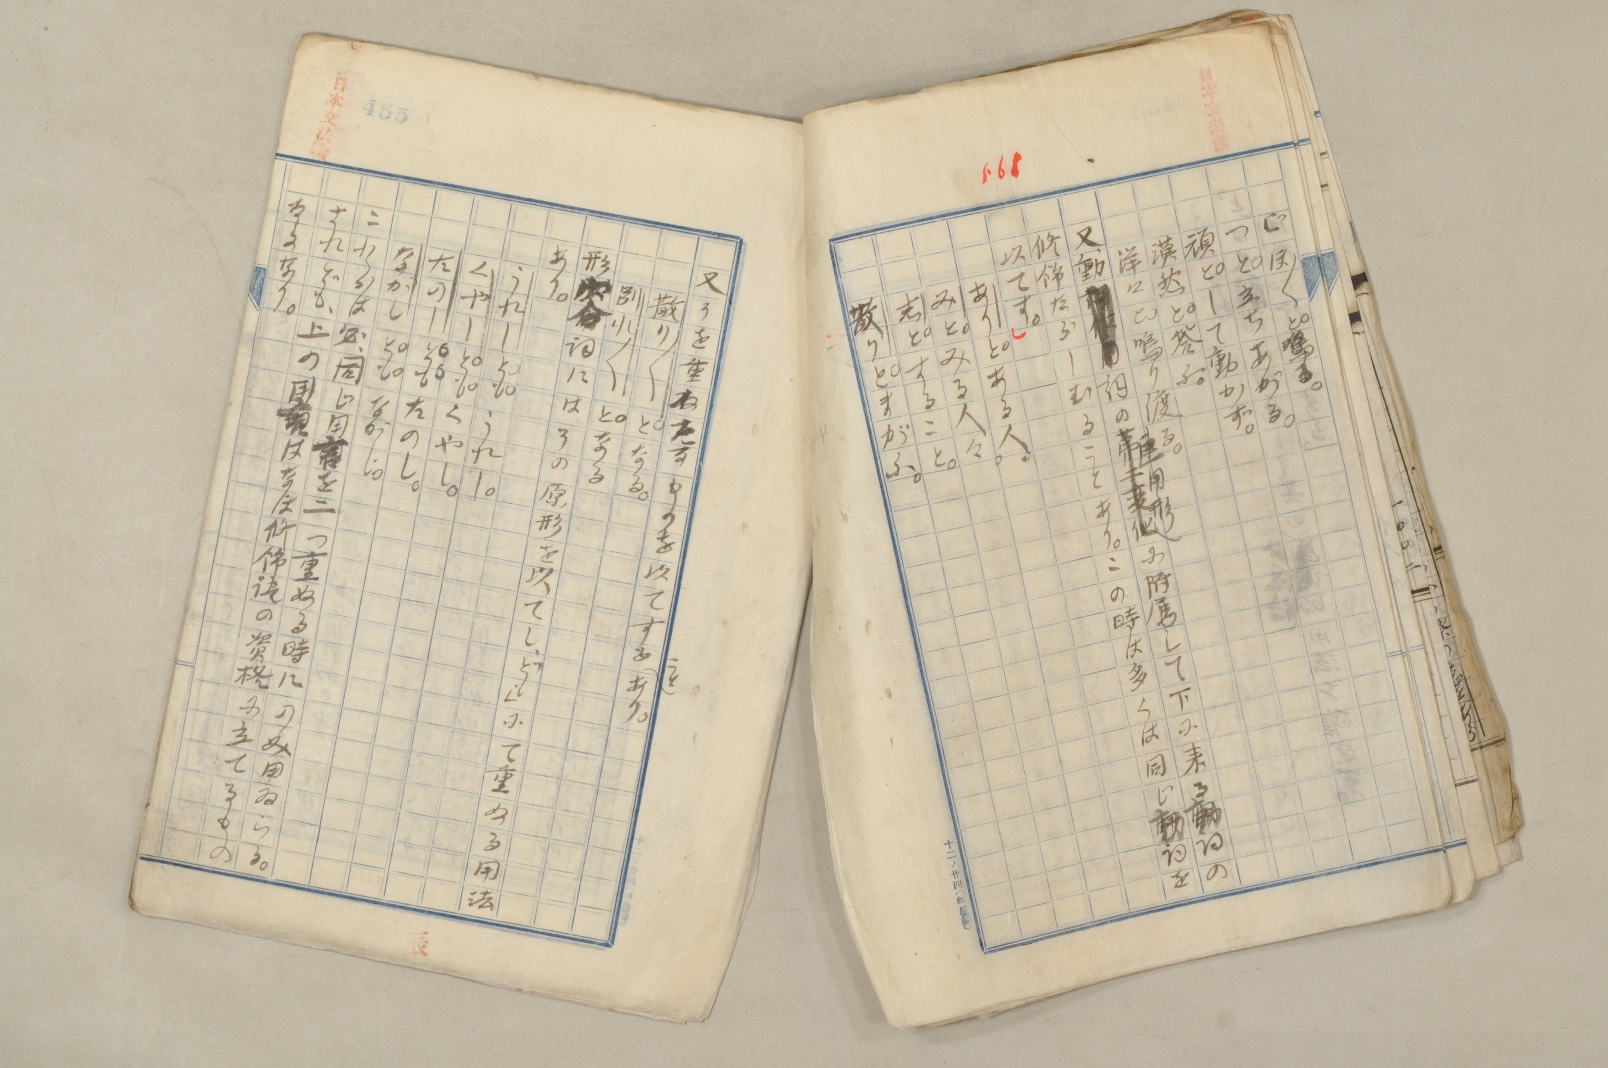 つと立ちあがる。
頑として動かず。
漠然と答ふ。
洋々と鳴り渡る。
又、動詞の連用形に附属して下に来る動詞の
修飾たらしむることあり。この時は多くは同じ動詞を
以てす。
ありとある人。
みとみる人々
志とすること。
散りとまがふ。
又之を重ねたるものを以てする(こと)あり。
散り〱となる。
別れ〱となる
形容詞にはその原形を以てし、「と」にて重ぬる用法
あり。
うれしともうれし。
くやしともくやし。
たのしともたのし。
ながしともながし。
これらは必、同じ用言を二つ重ぬる時にのみ用ゐらる。
されども、上の用言はなほ修飾語の資格に立てるもの
なるなり。
455
568
日本文法
辰